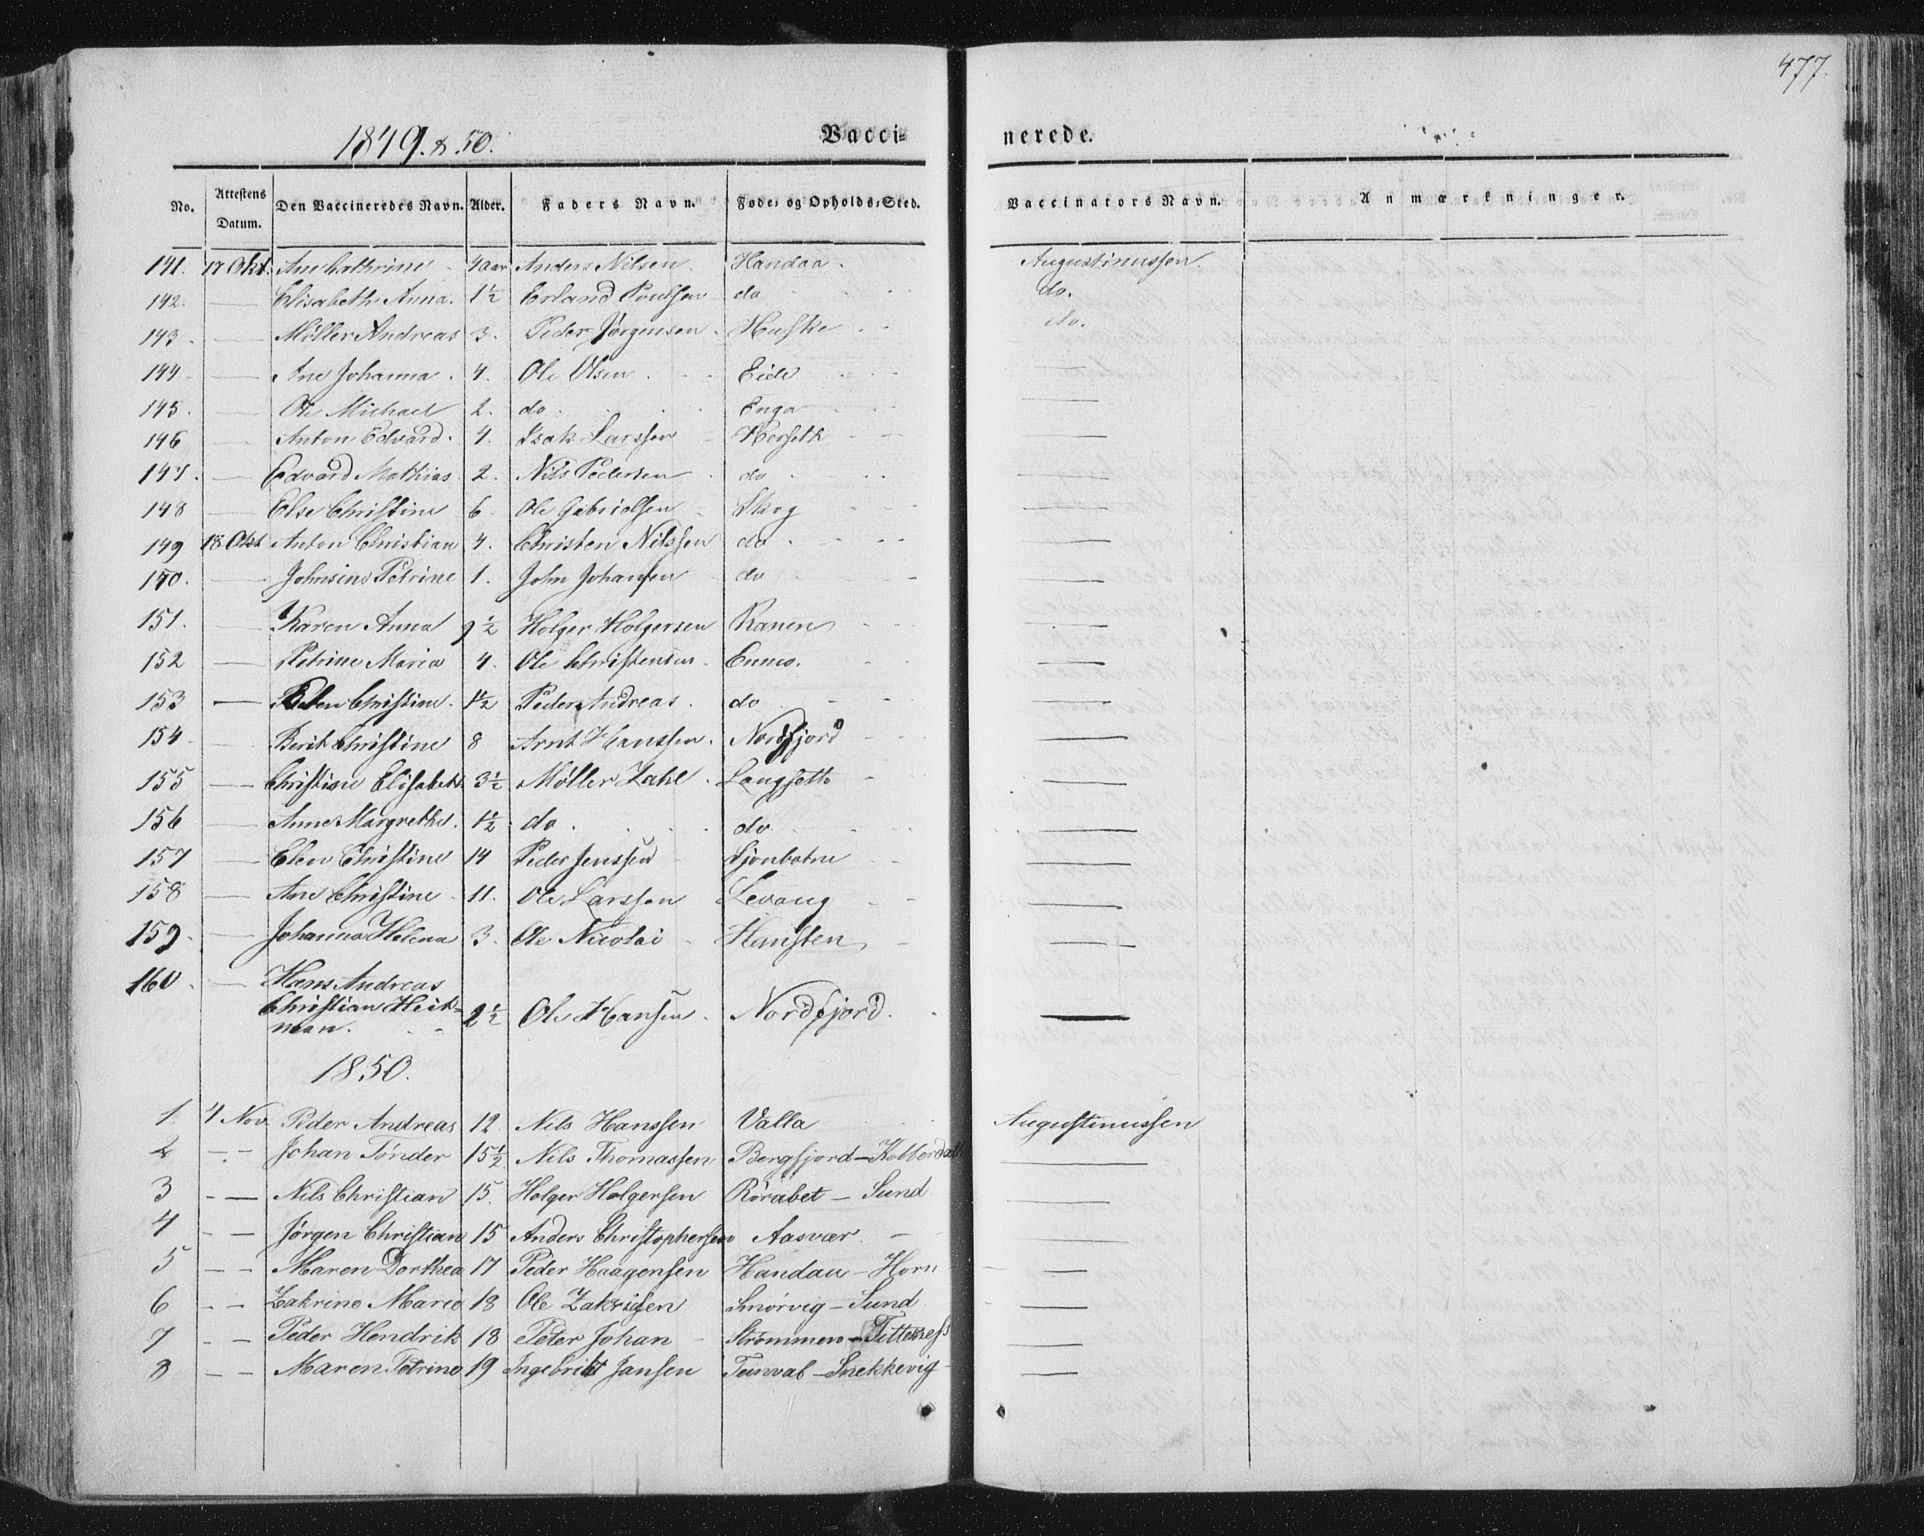 477.
1849. & 50.
Vacci-
nerede.
No. Attestens Datum. Den Vaccineredes Navn. Alder. Faders Navn. Føde- og Opholds-Sted. Vaccinators Navn. Anmærkninger.
141. 17 Okt. Ane Cathrine 4 aar Anders Nilsen. Handaa. Augustinussen.
142. — Elisabeth Anna. 1½ Erland Poulsen do do.
143. — Møller Andreas 3. Peder Jørgensen. Huske do.
144 — Ane Johanna. 4. Ole Olsen Eide —
145. — Ole Michael 2. do. Enga —
146 — Anton Edvard. 4. Isak Larssen Herseth —
147. — Edvard Mathias 2. Nils Pedersen do —
148 — Else Christine 6 Ole Gabrielsen Skog —
149 18 Okt Anton Christian 4. Christen Nilssen do. —
150. — Johnsine Petrine 1. John Johansen do —
151. — Karen Anna 9½ Holger Holgersen Ranen —
152 — Petrine Maria 4. Ole Christensen. —
153 — Christine. 1½ Peder Andreas. do —
154 — Berit Christine 8 Arnt Hanssen. Nordfjord —
155 — Christine Elisabeth 3½ Møller Zahl. Langsette —
156 — Anne Margrethe. 1½ do. do. —
157 — Elen Christine 14 Peder Jenssen Sjonbotne —
158 — Ane Christine 11. Ole Larssen Levang —
159. — Johanna Helena 3. Ole Nicolai Hansten —
160. — Hans Andreas
Christian Heit-
man. 2½ Ole Hansen. Nordfjord. —
1850.
1. 4 Nov. Peder Andreas 12 Nils Hanssen Valla Augustinussen
2 — Johan Tønder 15½ Nils Thomassen Bergfjord — —
3 — Nils Christian 15. Holger Holgersen Rørabet — Sund —
4 — Jørgen Christian 15 Anders Christophersen Aasvær. —
5 — Maren Dorthea 17 Peder Haagensen Handau — Horn —
6 — Zakrine Marie 18 Ole Zakrisen Smørvig — Sund —
7 — Peder Hendrik 18 Peter Johan Strømmen — —
8 — Maren Petrine 19 Ingebrikt Jansen — Snekkevig —